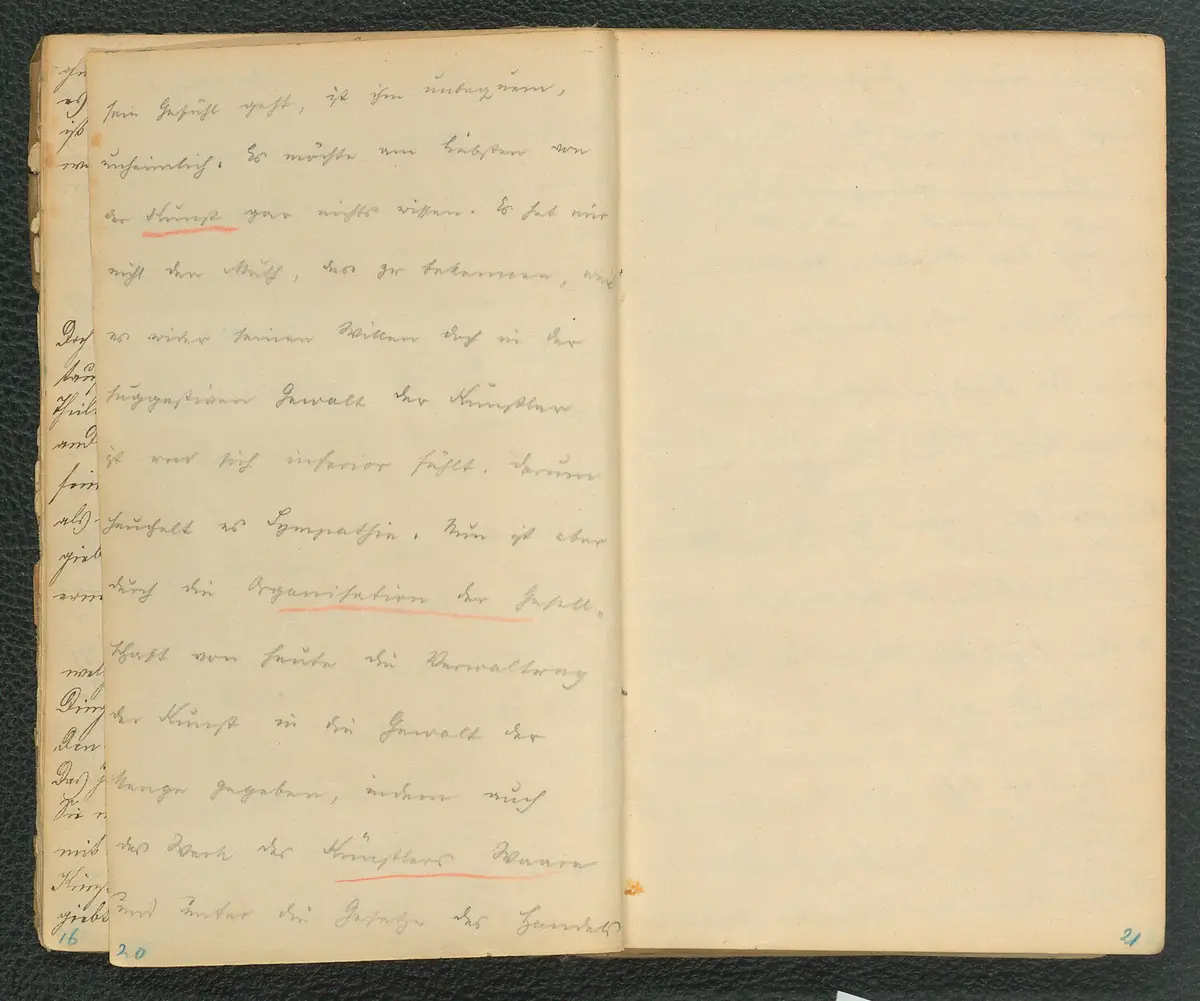 sein Gefühl geht, ist ihm unbequem,
unheimlich. Es möchte am liebsten von
der Kunst gar nichts wissen. Es hat nur
nicht den Muth, das zu bekennen, weil
es wider seinen Willen doch in der
suggestiven Gewalt der Künstler
ist und sich inferior fühlt. Darum
heuchelt es Sympathie. Nun ist aber
durch die Organisation der Gesell-
schaft von heute die Verwaltung
der Kunst in die Gewalt der
Menge gegeben, indem auch
das Werk des Künstlers Waare
und unter die Gesetze des Handels
es
ist
Doch
Theil
und
sein
als
Ding
Den
Das
Sie
mit
giebt
16
20
21